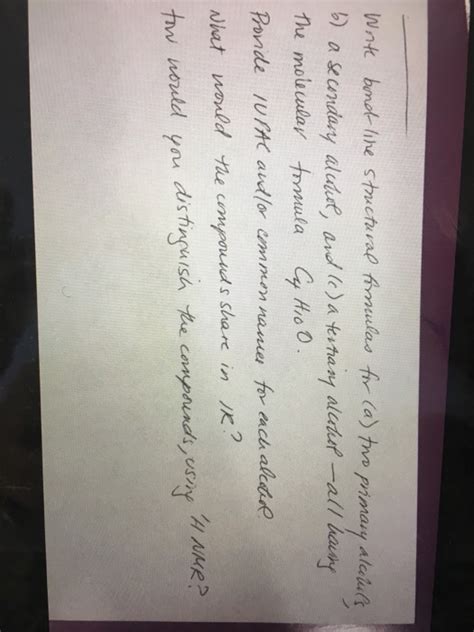 Write bond-line structural formulas for (a) two primary alcohols,
b) a secondary alcohol, and (c) a tertiary alcohol — all having
the molecular formula C4H10O.
Provide IUPAC and/or common names for each alcohol.
What would the compounds share in IR?
How would you distinguish the compounds, using 1H NMR?